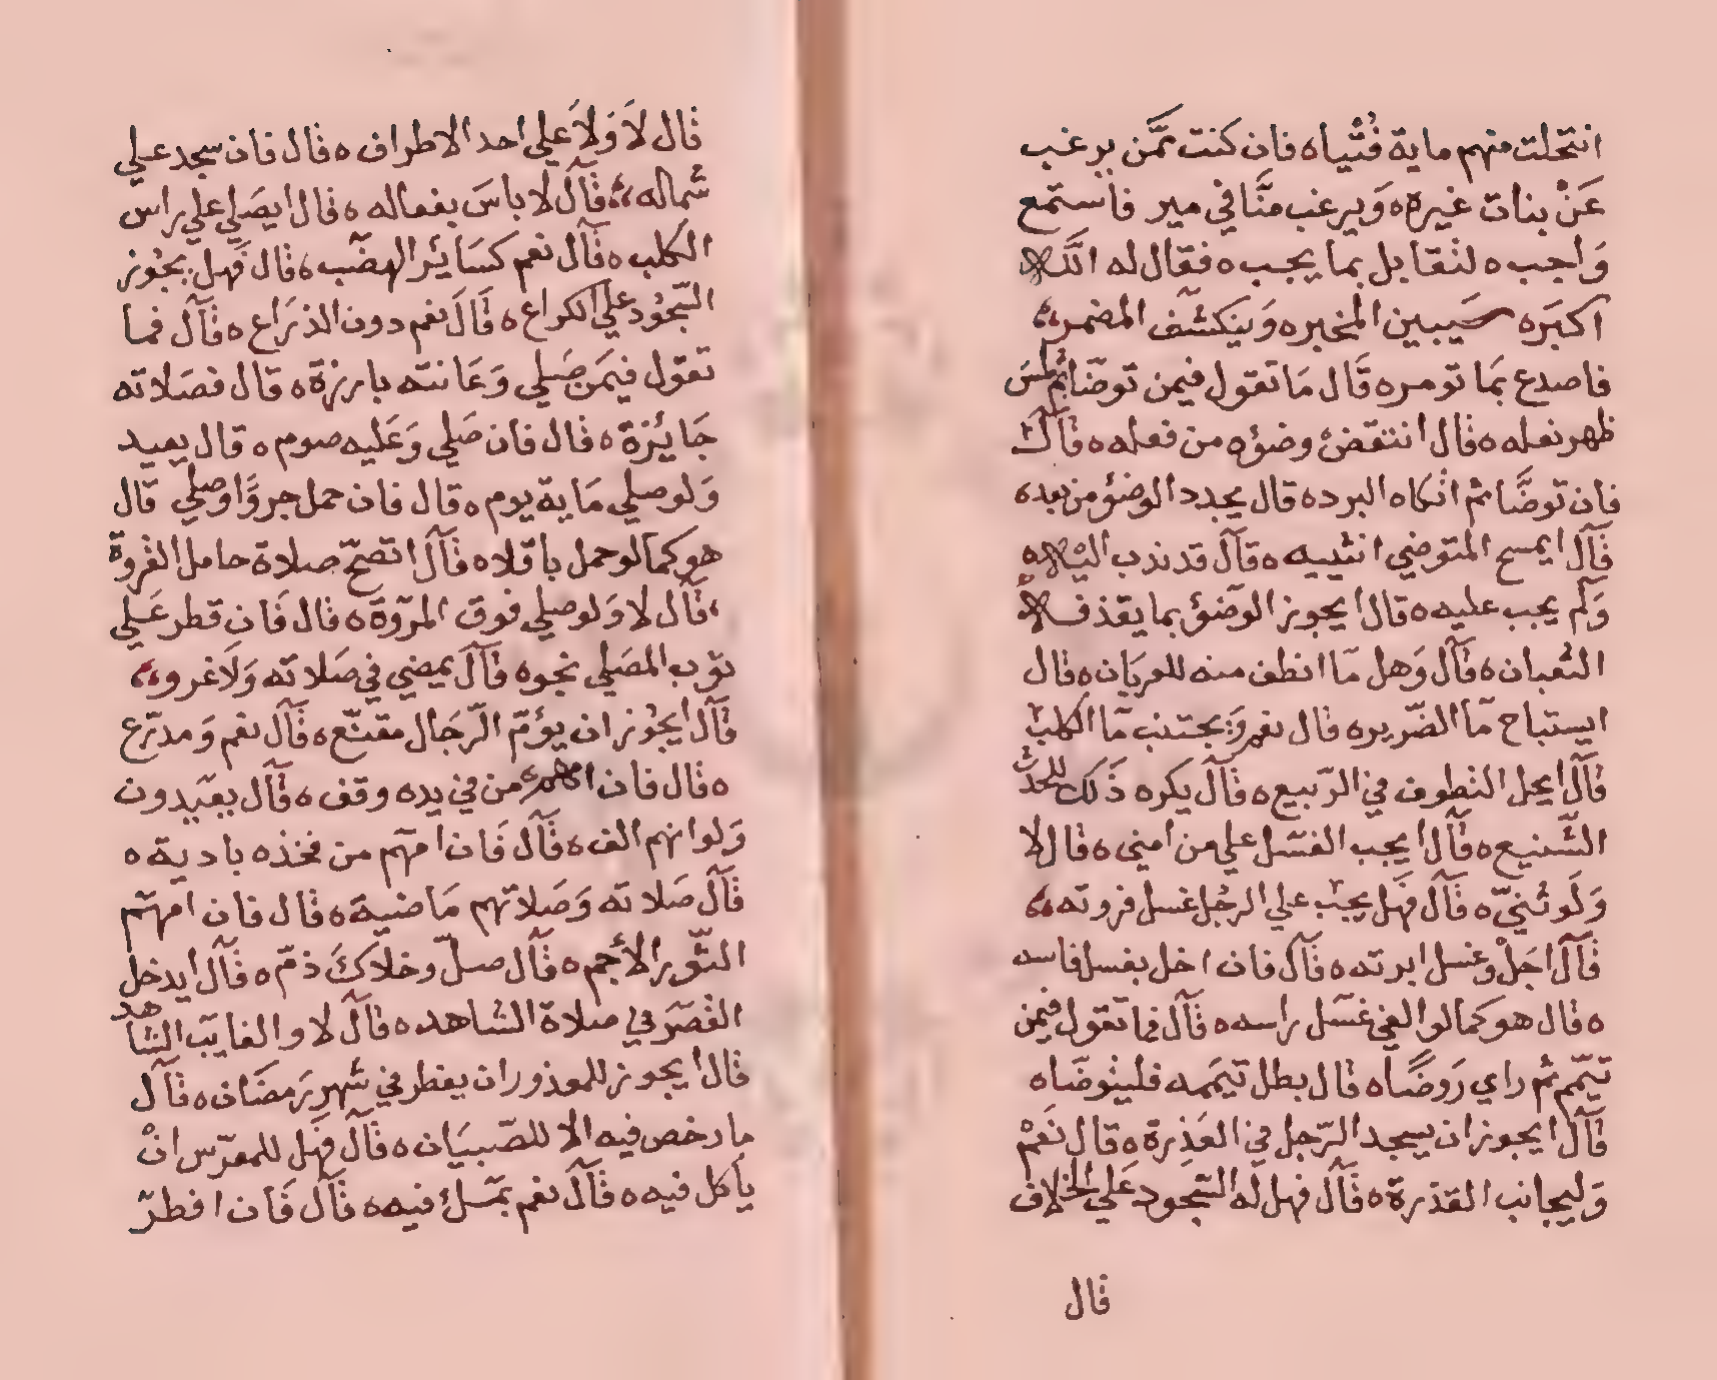 انتحلت منهم ماية فُتْياه فان كنت ممَّن يرغب
عَنْ بنات غيره وَيرغب منَّا في مير فاستمع
وَاجب ه لنقابل بما يجب ه فقال له الله
اكبَره سَيبين المخبره وَينكشف المضمر
فاصدع بمَا تومره قَال مَا تقول فيمن توضّا ثم لمسَ
ظهر نعله ه قال انتقضْ وضوُه من فعله ه قآل
فان توضَّا ثم اتكاه البرد ه قال يجدد الوضوُ من بعد ه
قآل ايمسح المتوضي انثييه ه قآل قد ندب اليه
وَلم يجب عليه ه قال ايجوز الوضوُ بما يقذفه
الثعبان ه قآل وَهل مَا انظف منه للعربَان ه قال
ايستباح مآ الضّرير ه قال نعم وَيجتنب مآ الكلب
قآل ايحل التطوف في الرّبيع ه قآل يكره ذَلك للحدث
الشّنيع ه قآل ايجب الغسَل علي من امني ه قال لا
وَلَو ثُنيّ ه قآل فهَل يجبْ علي الرجُل غسل فروته
قآل اجَلْ وغسل ابرته ه قآل فان اخل بغسل فاسه
ه قال هو كما لو الغي غسَل راسه ه قآل فما تقول فيمن
تيمّم ثم راي رَوضًا ه قال بطل تيمَمه فليتوضّا ه
قآل ايجوز ان يسجد الرّجل في العَذِرة ه قال نَعَمْ
وَليجانب القذرة ه قآل فهل له السّجود عَلي الخلاف
قال
قال لاَ وَلاَ علي احد الاطراف ه قال فان سجد علي
شماله قآل لا باسَ بفعاله ه قال ايصَلي علي راس
الكلب ه قآل نعم كسَائر الهضَب ه قال فَهل يجوز
السّجُود علي الكراع ه قَالَ نعم دون الذرَاع ه قآل فما
تقوَل فيمَن صَلي وَعَانته بارزة ه قال فصَلاته
جَائزة ه قال فان صَلي وَعَليه صوم ه قال يعيد
وَلو صلي مَاية يوم ه قال فان حمل جروًا وصلي قال
هو كما لو حمل باقلا ه قآل اتصحّ صلاة حامل القروة
قآل لا وَلو صلي فوق المرَوة ه قال فَان قطر عَلي
ثوب المصَلي نجو ه قآلَ يمضي في صَلاته وَلاَ غرو
قآل ايجوُز ان يؤمّ الرّجَال مقنّع ه قآل نعم وَمدرّع
ه قال فان امهم من في يده وقف ه قآل يعيدون
وَلو انهم الف ه قآل فَان امهّم من فخذه بادية ه
قآل صَلاته وَصَلاتهم مَاضية ه قال فان امهّم
الثّور الأجم ه قآل صلّ وخلاكَ ذمّ ه قآل ايدخل
القصَر في صلاة الشاهد ه قآل لا والغايب الشاهد
قال ايجوز للمعذور ان يفطر في شهر رَمضَان ه قآل
ما رخص فيه الا للصّبيَان ه قآل فهَل للمعرّس انْ
يأكل فيه ه قآل نعم بمَلئ فيه ه قآل فَان افطرّ